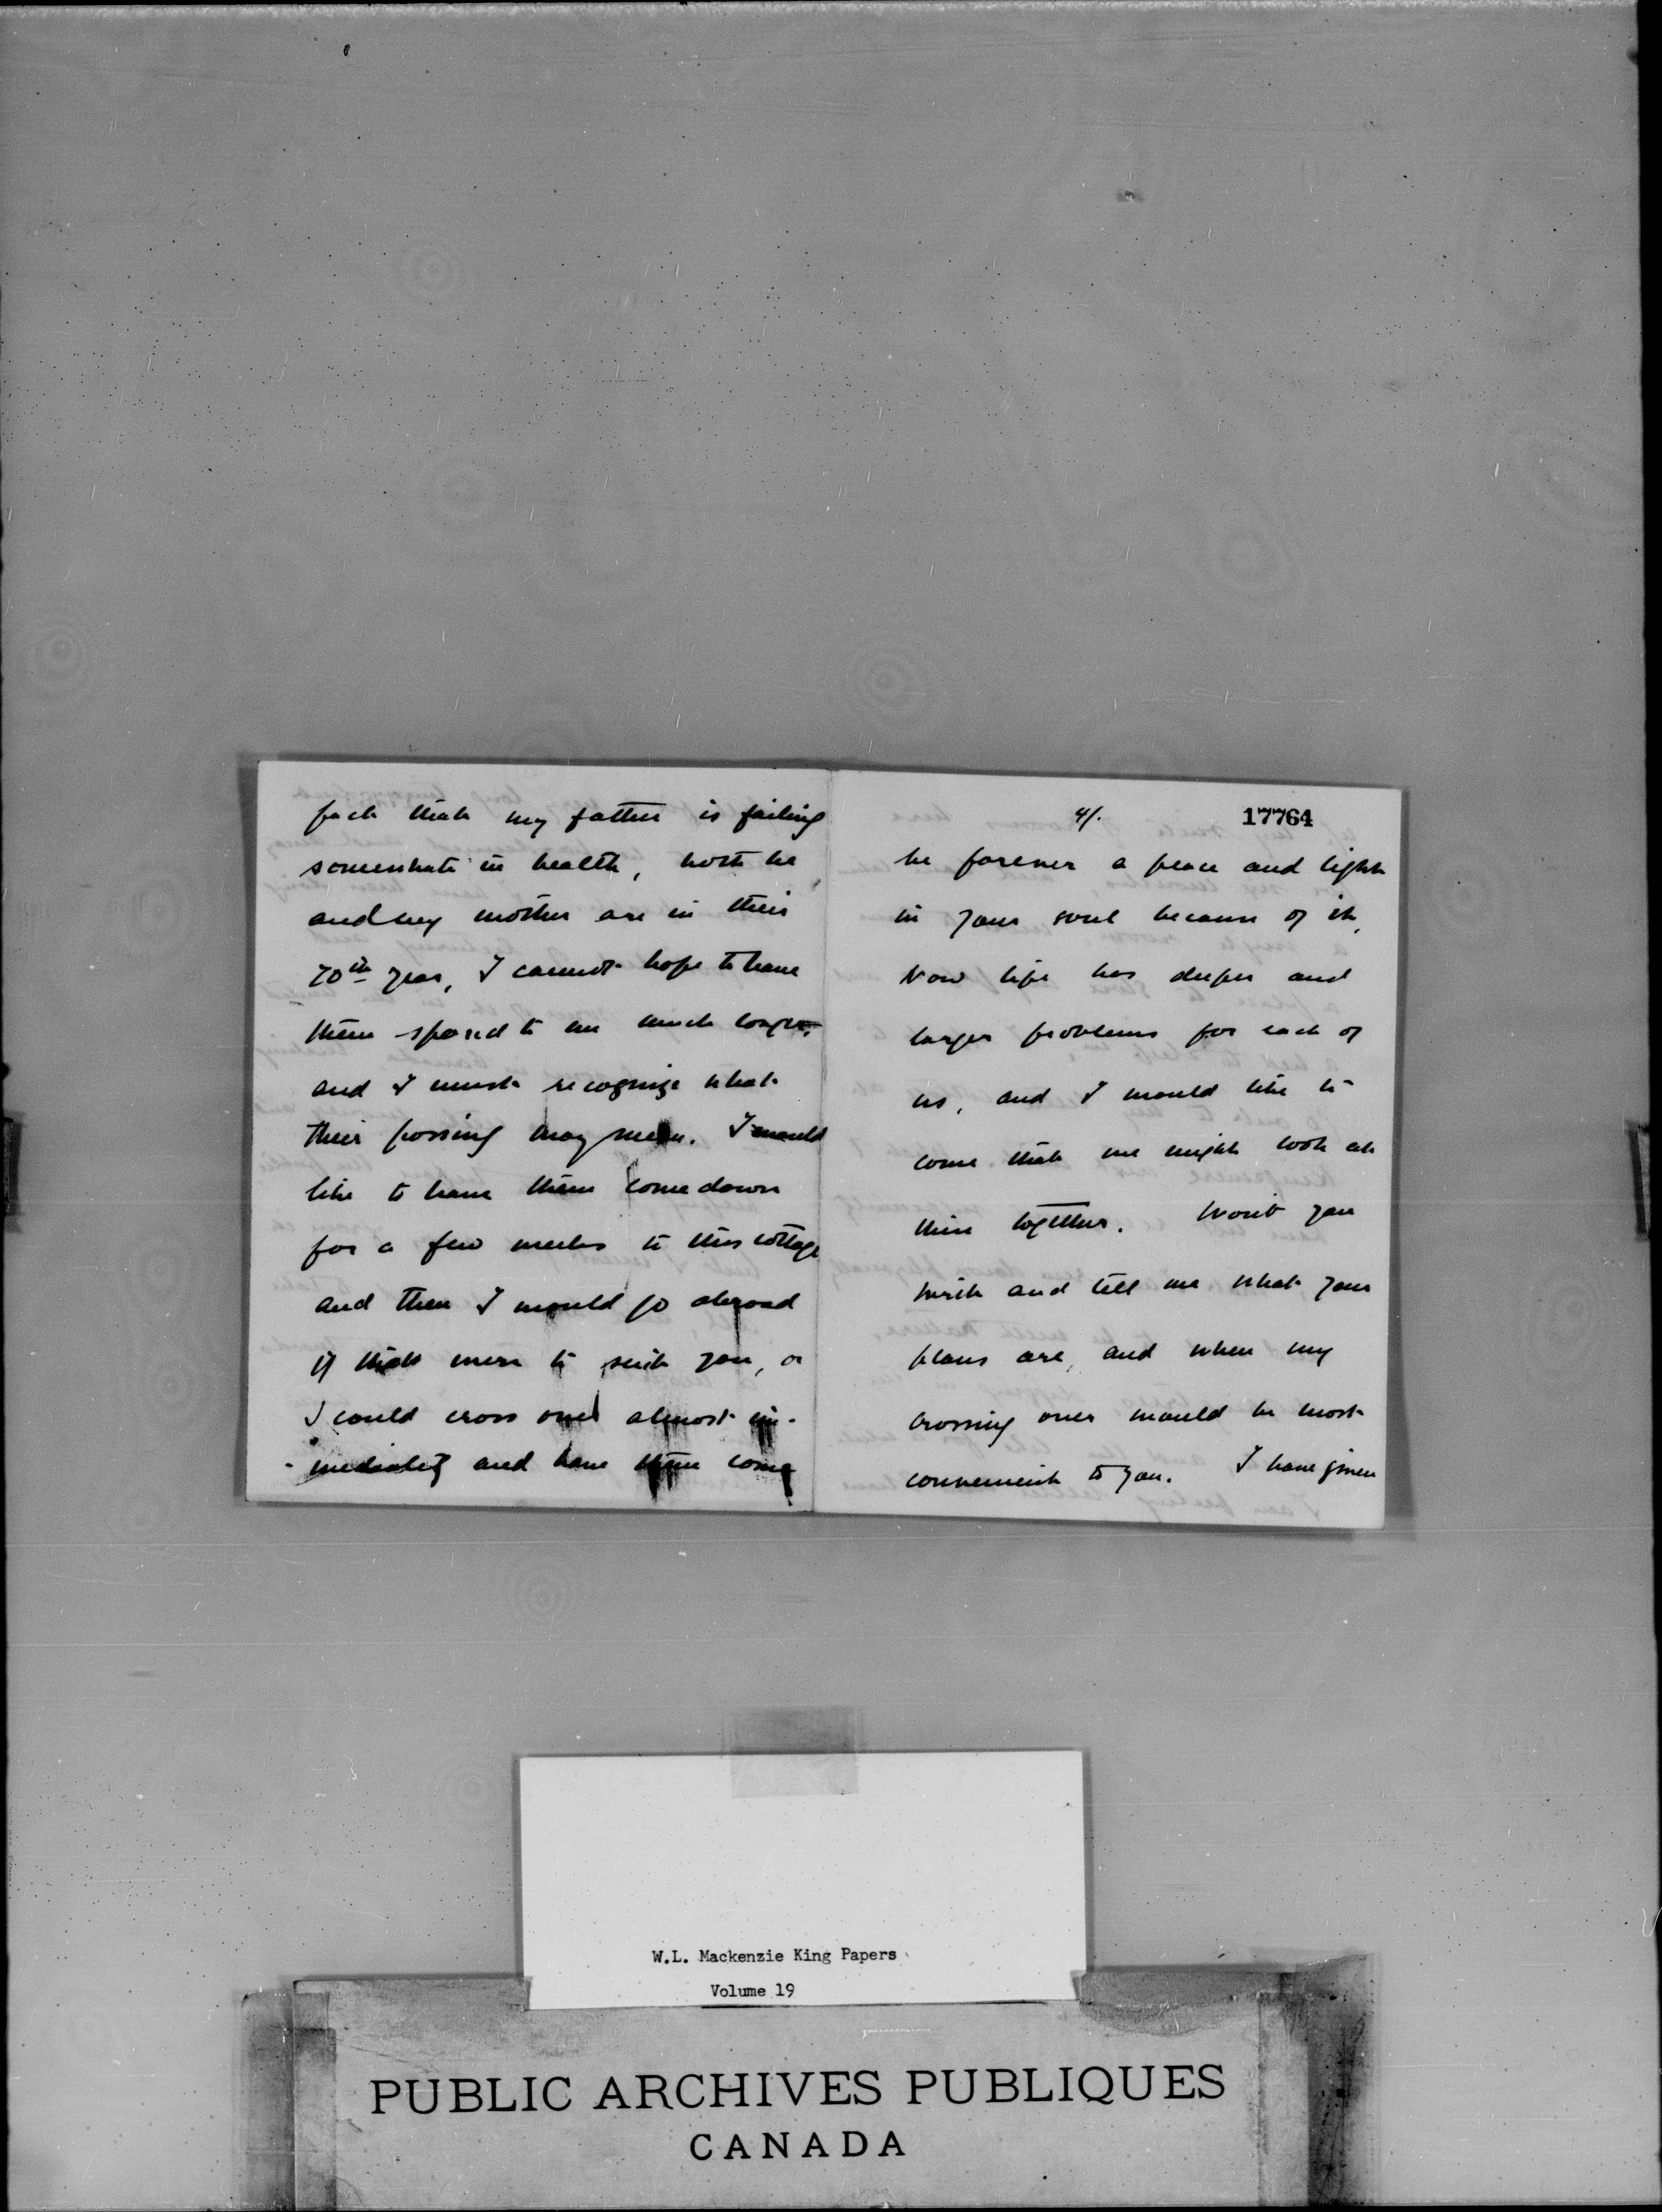 fact that my father is failing
somewhat in health, both he
and my mother are in their
70th year, I cannot hope to have
them spared to me much longer,
and I must recognize what
their passing may mean. I would
like to have them come down
for a few weeks to this cottage
and then I would go abroad
if that were to suit you, or
I could cross over almost im-
-mediately and have them come
4/.
17764
be forever a peace and light
in your soul because of it,
Now life has deeper and
larger problems for each of
us, and I would like to
come that we might look at
them together. Won't you
write and tell me what your
plans are, and when my
crossing over would be most
convenient to you. I have given
W.L. Mackenzie King Papers
Volume 19
PUBLIC ARCHIVES PUBLIQUES
CANADA